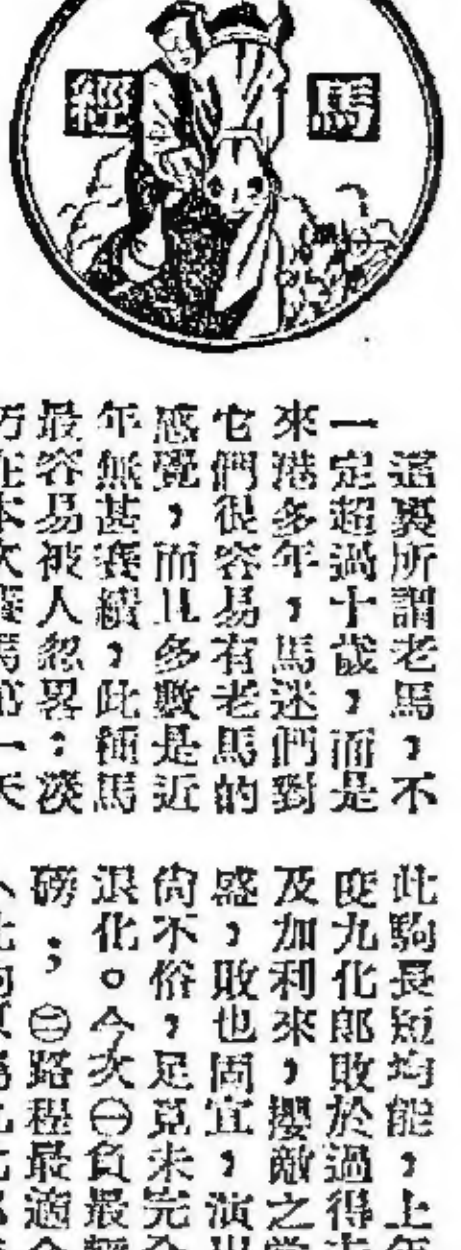 馬經
這裏所謂老馬,不
一定超過十歲,而是
來港多年,馬迷們對
它們很容易有老馬的
感覺,而且多數是近
年無甚賽績,此種馬
最容易被人忽畧:淡
此駒長短均能,上
度九化郎敗於過得
及加利來,攖敵之
惑,敗也固宜,演
尚不俗,足見未完
退化。今次㊀負最
磅;㊁路程最適